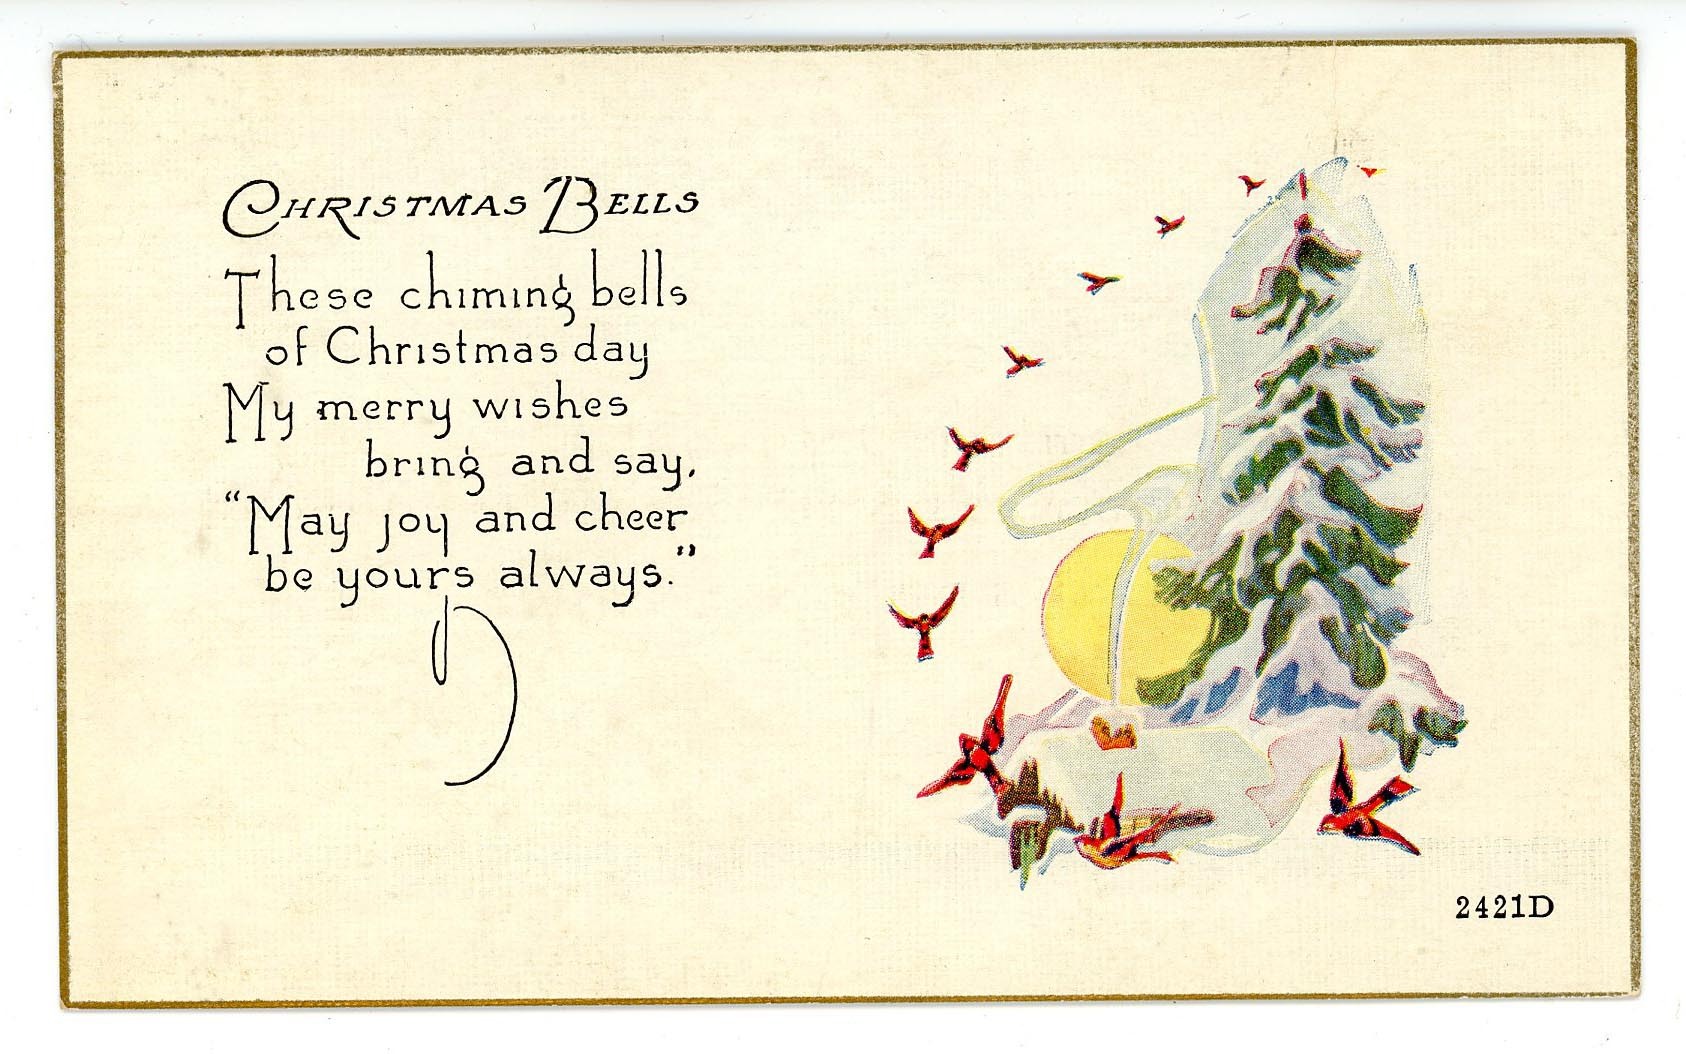 CHRISTMAS BELLS
These chiming bells
of Christmas day
My merry wishes
bring and say,
"May joy and cheer
be yours always."
2421D